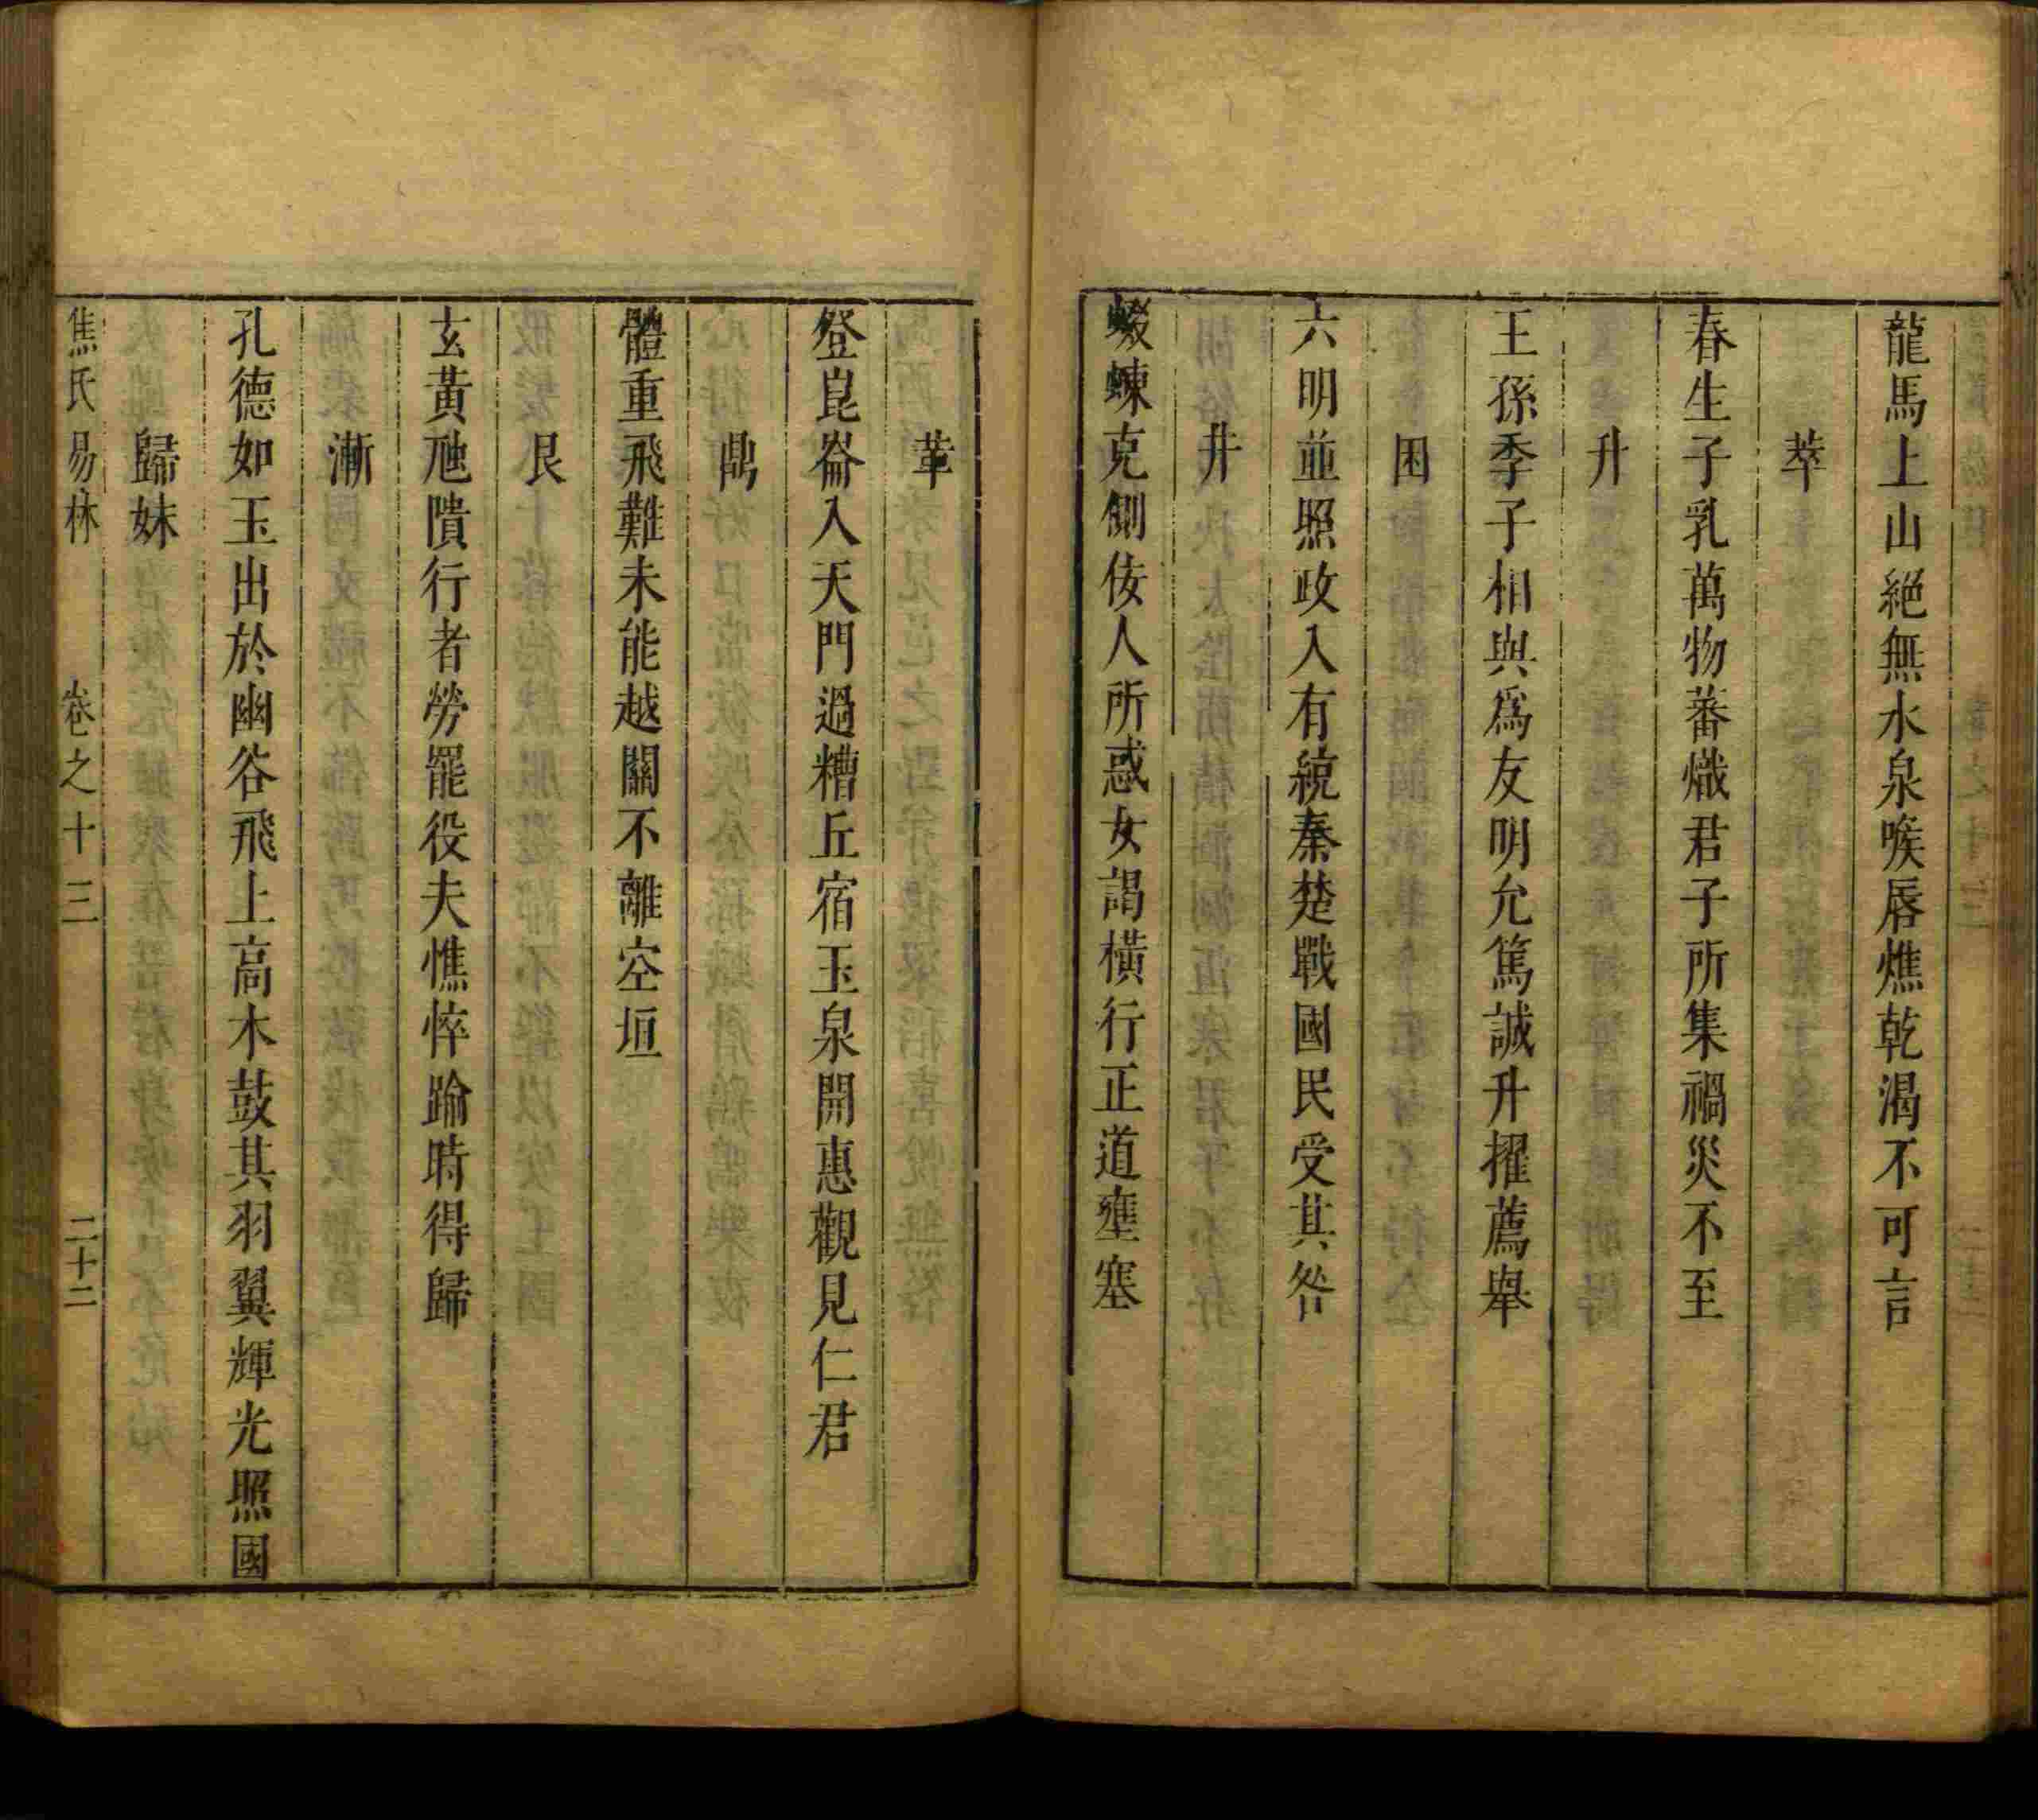 龍馬上山絕無水泉喉唇燋乾渴不可言
萃
春生子乳萬物蕃熾君子所集禍災不至
升
王孫季子相與爲友明允篤誠升擢薦舉
困
六明並照政入有統秦楚戰國民受其咎
井
蝃蝀充側佞人所惑女謁橫行正道壅塞
革
登崑崙入天門過糟丘宿玉泉開惠觀見仁君
鼎
體重飛難未能越關不離空垣
艮
玄黃虺隤行者勞罷役夫憔悴踰時得歸
漸
孔德如玉出於幽谷飛上高木鼓其羽翼輝光照國
歸妹
焦氏易林 卷之十三 二十二